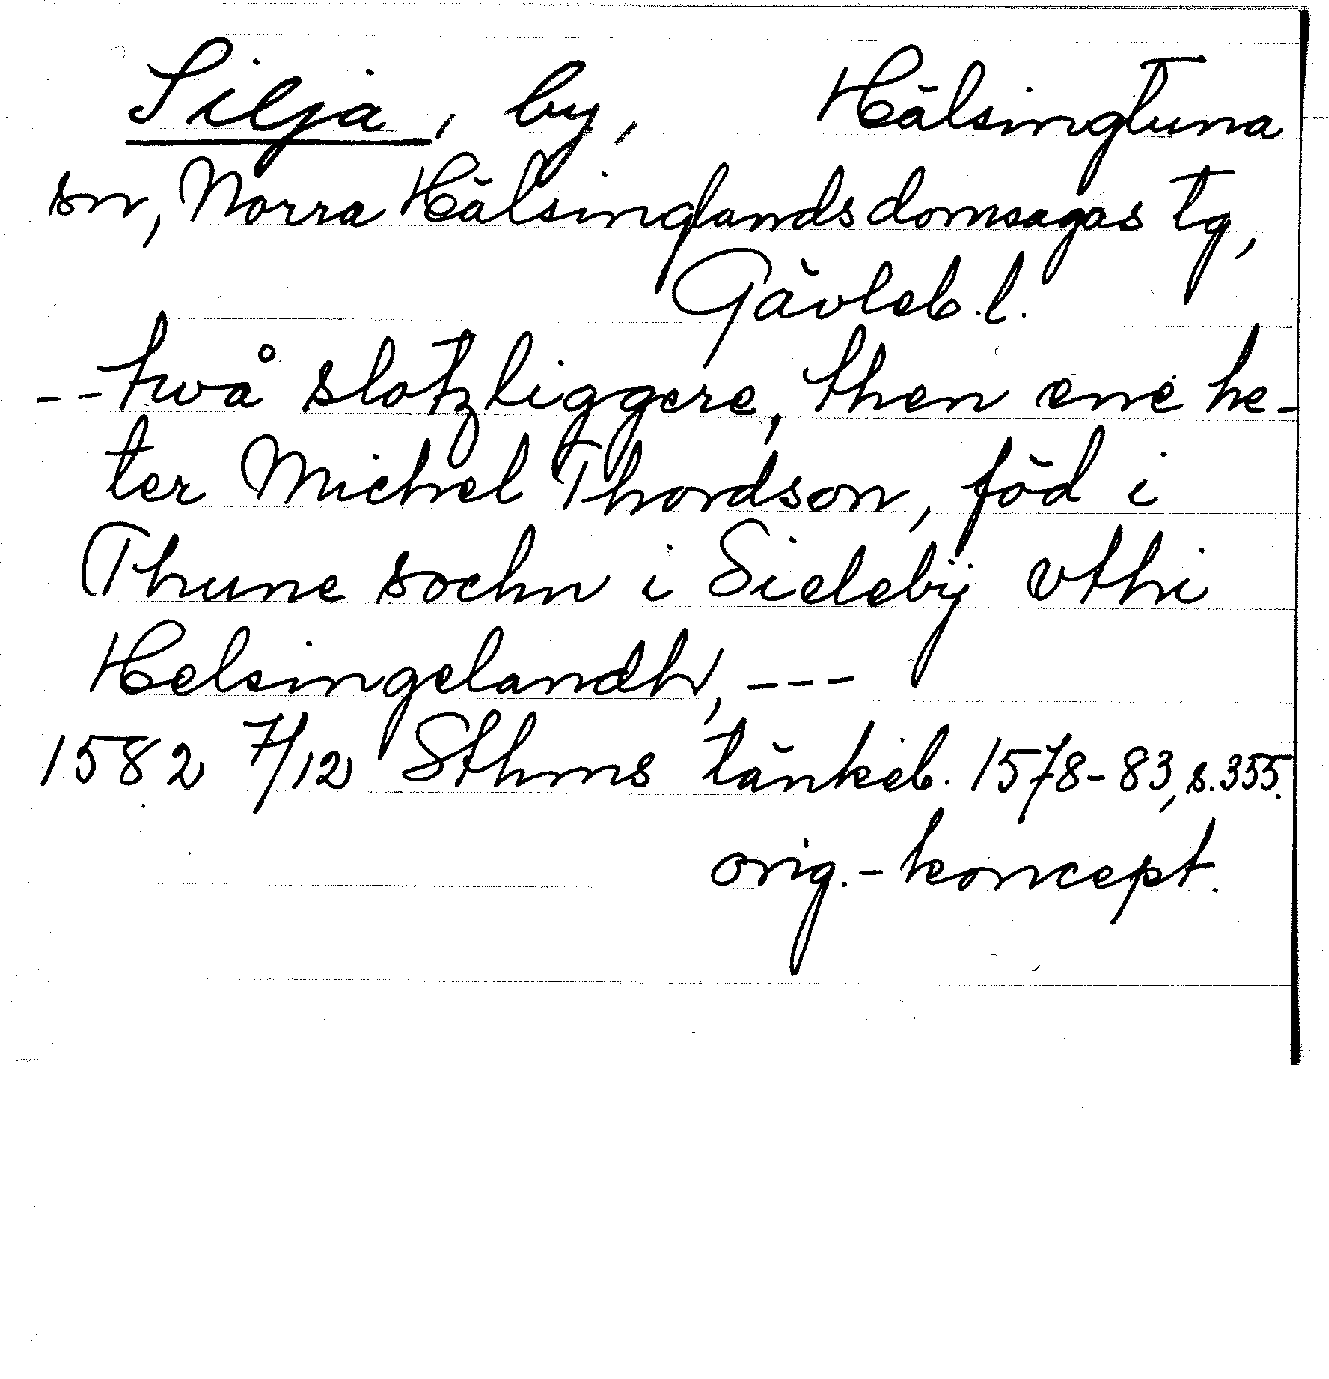 Silja, by, Hälsingtuna
sn, Norra Hälsinglands domsagas tg,
Gävleb.l.
--twå slotzliggere, then ene he-
ter Michel Thordson, föd i
Thune sochn i Sielebÿ vthi
Helsingelandh, ---
1582 7/12 Sthms tänkeb. 1578-83, s.355.
orig.-koncept.